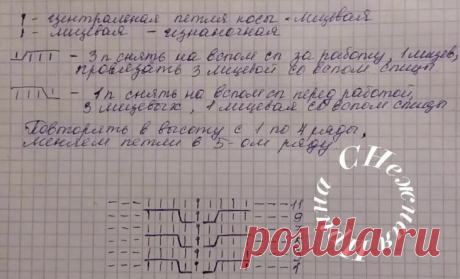 | - центральная петля косы - лицевая
| - лицевая - изнаночная
- 3 п снять на вспом сп за работу, 1 лицев,
провязать 3 лицевой со вспом спицы
- 1 п снять на вспом сп перед работой,
3 лицевых, 1 лицевая со вспом спицы
Повторять в высоту с 1 по 4 ряды,
меняем петли в 5-ом ряду
11
9
1
СНежная
postila.ru